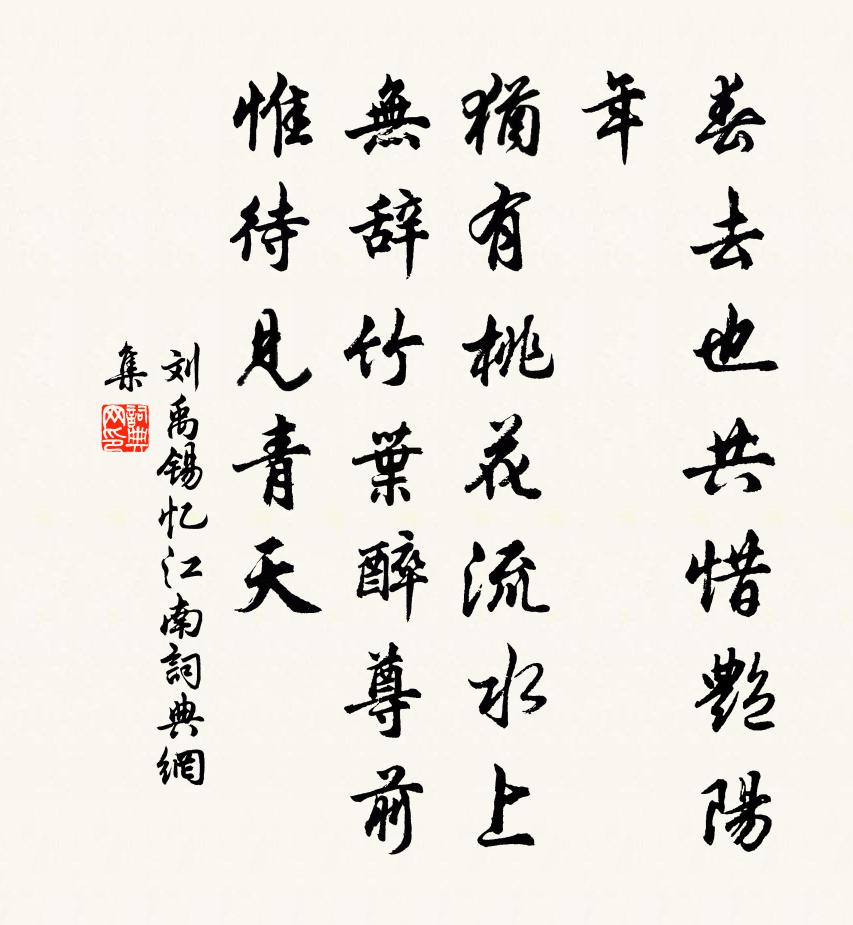 春去也共惜艷陽
年
猶有桃花流水上
無辞竹葉醉尊前
惟待見青天
刘禹锡忆江南詞典網
集
詞典网印